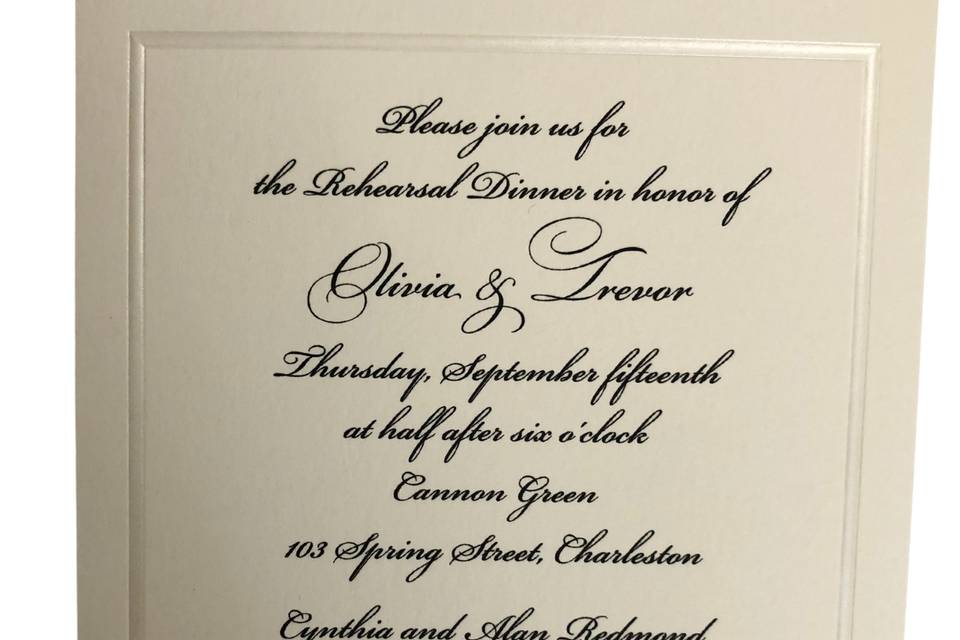 Please join us for
the Rehearsal Dinner in honor of
Olivia & Trevor
Thursday, September fifteenth
at half after six o'clock
Cannon Green
103 Spring Street, Charleston
Cynthia and Alan Redmond